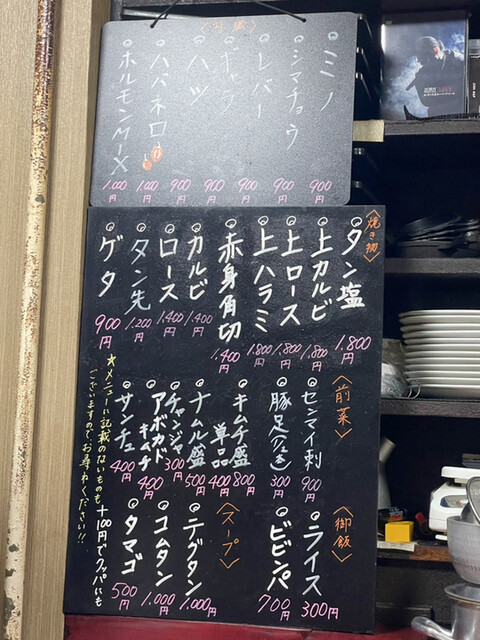 ミノ 900円
シマチョウ 900円
レバー 900円
ギャラ 900円
ハツ 900円
ハバネロ 1,000円
ホルモンMIX 1,000円
〈焼き物〉
タン塩 1,800円
上カルビ 1,800円
上ロース 1,800円
上ハラミ 1,800円
赤身角切 1,400円
カルビ 1,400円
ロース 1,400円
タン先 1,200円
ゲタ 900円
〈前菜〉
センマイ刺 900円
豚足 300円
キムチ盛 800円
単品 400円
ナムル盛 500円
チャンジャ 300円
アボカド
キムチ 400円
サンチュ 400円
〈御飯〉
ライス 300円
ビビンパ 700円
〈スープ〉
テグタン 1,000円
コムタン 1,000円
タマゴ 500円
+100円でクッパにも
★メニューに記載のないものも
ございますので、お尋ねください!!